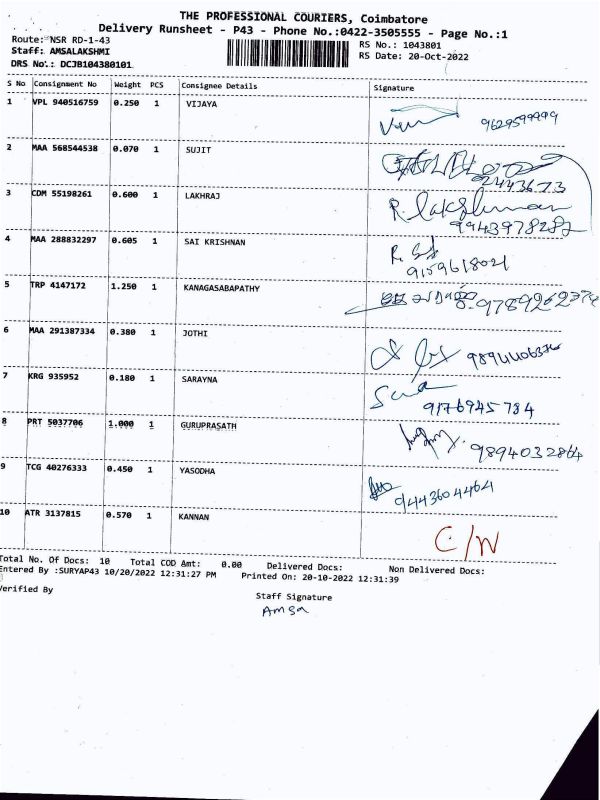 THE PROFESSIONAL COURIERS, Coimbatore
Delivery Runsheet - P43 - Phone No.:0422-3505555 - Page No.:1
Route: NSR RD-1-43 RS No.: 1043801
Staff: AMSALAKSHMI RS Date: 20-Oct-2022
DRS No.: DCJB104380101
S No Consignment No Weight PCS Consignee Details Signature
1 VPL 940516759 0.250 1 VIJAYA 9629599999
2 MAA 568544538 0.070 1 SUJIT
3 CDM 55198261 0.600 1 LAKHRAJ R. lakshuman
9943978282
4 MAA 288832297 0.605 1 SAI KRISHNAN
9159618021
5 TRP 4147172 1.250 1 KANAGASABAPATHY
6 MAA 291387334 0.380 1 JOTHI
7 KRG 935952 0.180 1 SARAYNA
9176945784
8 PRT 5037706 1.000 1 GURUPRASATH
9894032864
9 TCG 40276333 0.450 1 YASODHA
9443604464
10 ATR 3137815 0.570 1 KANNAN C/N
Total No. Of Docs: 10 Total COD Amt: 0.00 Delivered Docs: Non Delivered Docs:
Entered By :SURYAP43 10/20/2022 12:31:27 PM Printed On: 20-10-2022 12:31:39
Verified By Staff Signature
Amsa